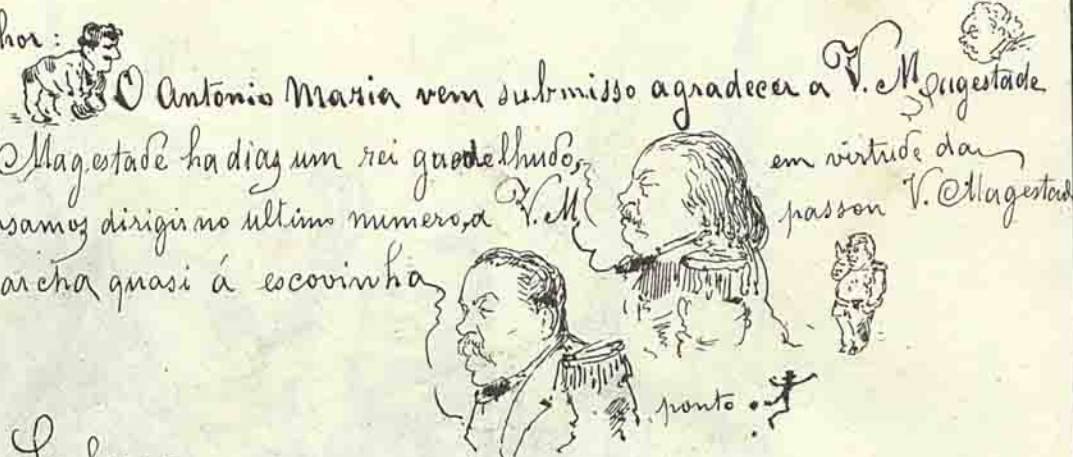 hor:
O Antonio Maria vem submisso agradecer a V. Magestade
Magestade ha dias um rei guedelhudo, em virtude da
samos dirigir no ultimo numero, a V. M passou V. Magestad
archa quasi á escovinha
ponto.